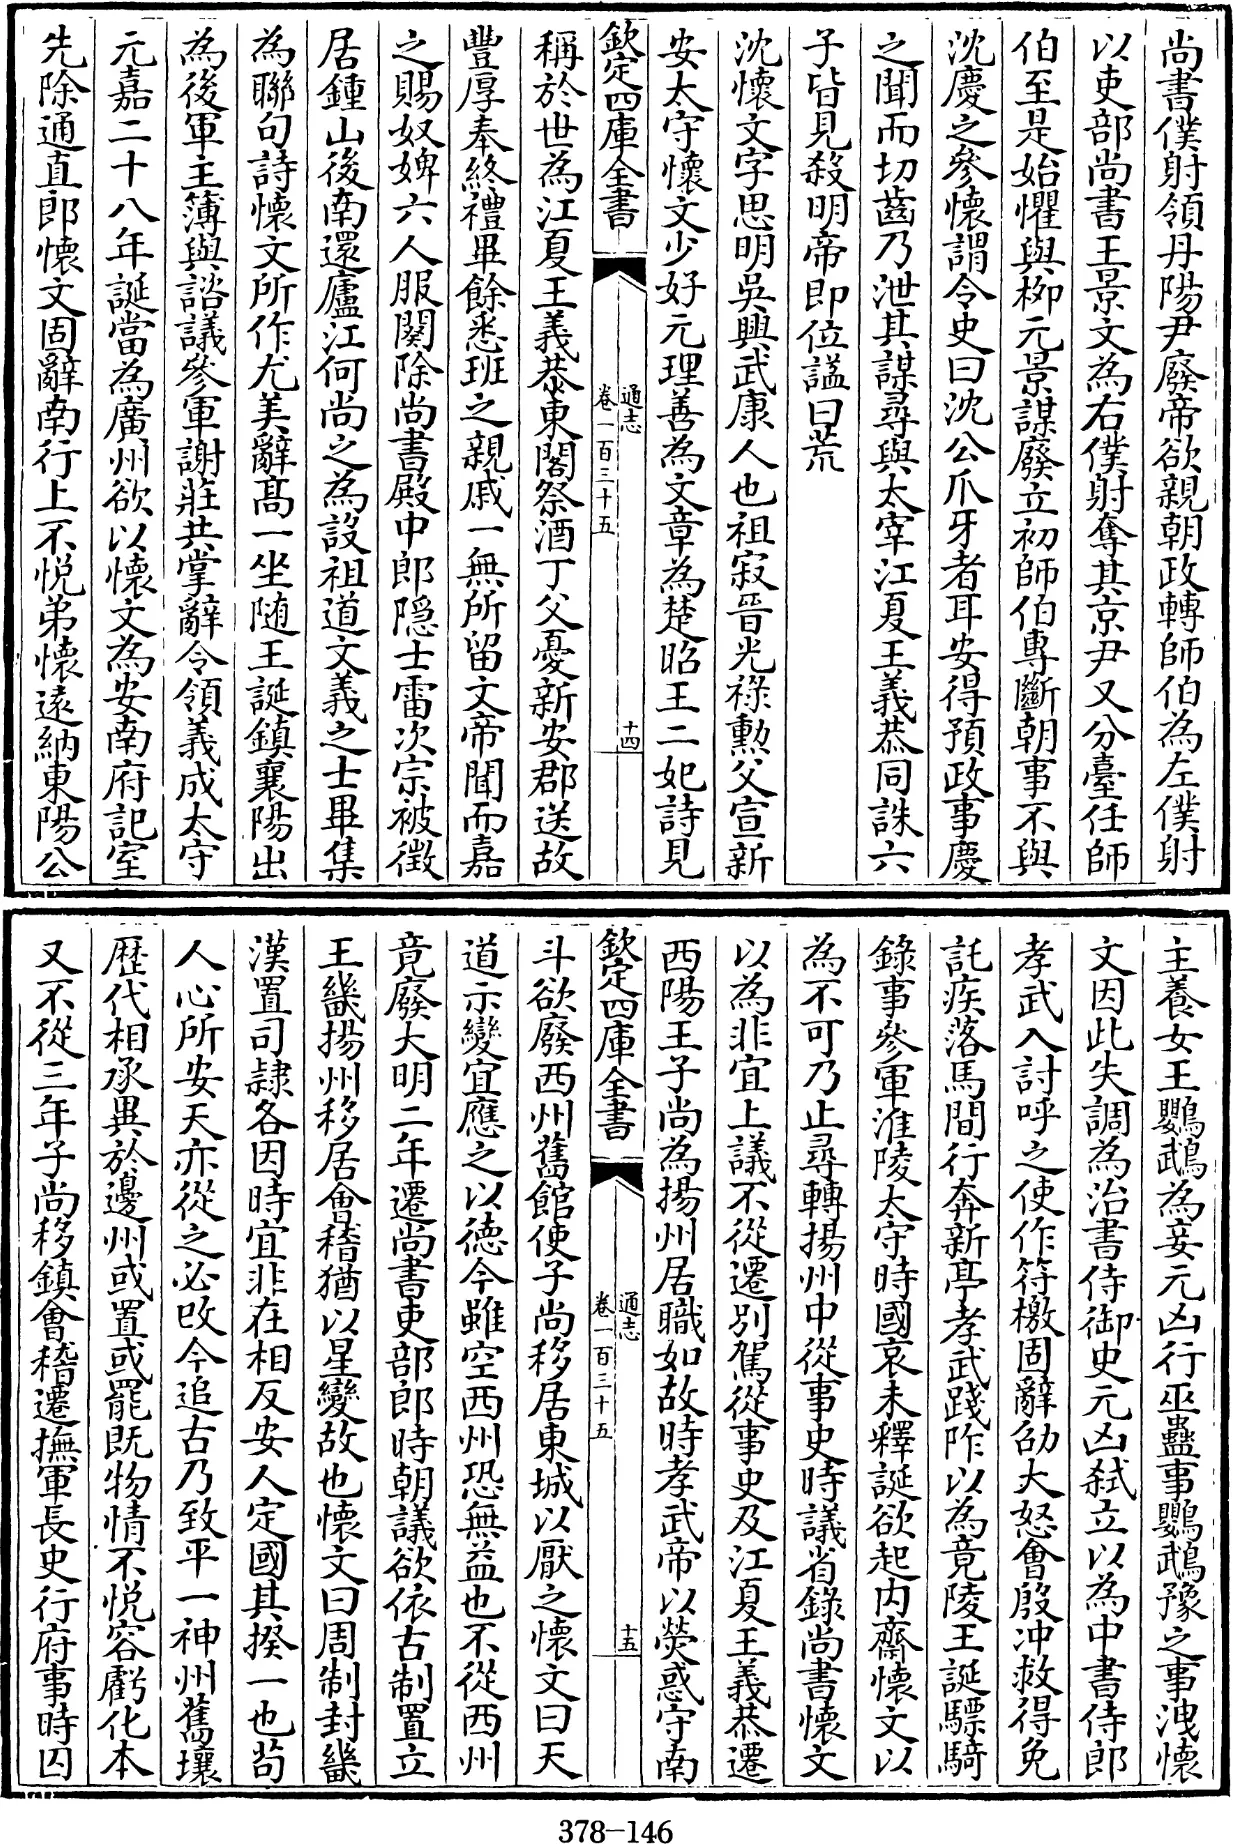 尚書僕射領丹陽尹廢帝欲親朝政轉師伯為左僕射
以吏部尚書王景文為右僕射奪其京尹又分臺任師
伯至是始懼與栁元景謀廢立初師伯專斷朝事不與
沈慶之參懷謂令史曰沈公爪牙者耳安得預政事慶
之聞而切齒乃泄其謀尋與太宰江夏王義恭同誅六
子皆見殺明帝即位諡曰荒
沈懷文字思明吳興武康人也祖寂晉光祿勲父宣新
安太守懷文少好元理善為文章為楚昭王二妃詩見
欽定四庫全書
通志
卷一百三十五
十四
稱於世為江夏王義恭東閣祭酒丁父憂新安郡送故
豐厚奉終禮畢餘悉班之親戚一無所留文帝聞而嘉
之賜奴婢六人服闋除尚書殿中郎隠士雷次宗被徵
居鍾山後南還廬江何尚之為設祖道文義之士畢集
為聯句詩懷文所作尤美辭髙一坐随王誕鎮襄陽出
為後軍主簿與諮議參軍謝莊共掌辭令領義成太守
元嘉二十八年誕當為廣州欲以懷文為安南府記室
先除通直郎懷文固辭南行上不悅弟懷遠納東陽公
主養女王鸚鵡為妾元凶行巫蠱事鸚鵡豫之事洩懷
文因此失調為治書侍御史元凶弑立以為中書侍郎
孝武入討呼之使作符檄固辭劭大怒會殷冲救得免
託疾落馬間行奔新亭孝武踐阼以為竟陵王誕驃騎
錄事參軍淮陵太守時國哀未釋誕欲起内齋懷文以
為不可乃止尋轉揚州中從事史時議省錄尚書懷文
以為非宜上議不從遷别駕從事史及江夏王義恭遷
西陽王子尚為揚州居職如故時孝武帝以熒惑守南
欽定四庫全書
通志
卷一百三十五
十五
斗欲廢西州舊館使子尚移居東城以厭之懷文曰天
道示變宜應之以德今雖空西州恐無益也不從西州
竟廢大明二年遷尚書吏部郎時朝議欲依古制置立
王畿揚州移居會稽猶以星變故也懷文曰周制封畿
漢置司隷各因時宜非在相反安人定國其揆一也茍
人心所安天亦從之必改今追古乃致平一神州舊壤
歴代相承異於邊州或置或罷既物情不悅容虧化本
又不從三年子尚移鎮會稽遷撫軍長史行府事時囚
378-146